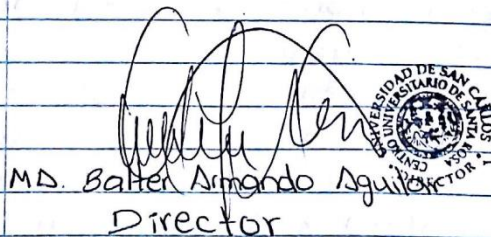 MD. Balter Armando Aguilar
Director
UNIVERSIDAD DE SAN CARLOS
CENTRO UNIVERSITARIO DE SANTA ROSA
DIRECTOR